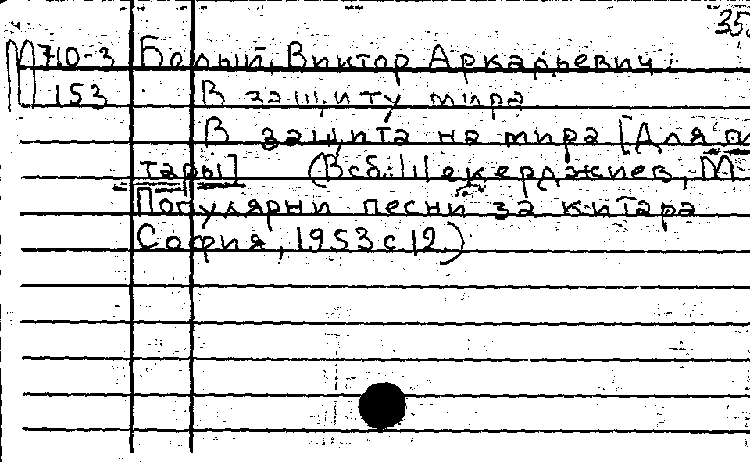 35
М710-3 Балый, Виктор Аркадьевич.
153 В защиту мира
В защита на мира [Для ги
тары] (В сб.: Шекерджиев, М.
Популярни песни за китара
София, 1953 с 12.)